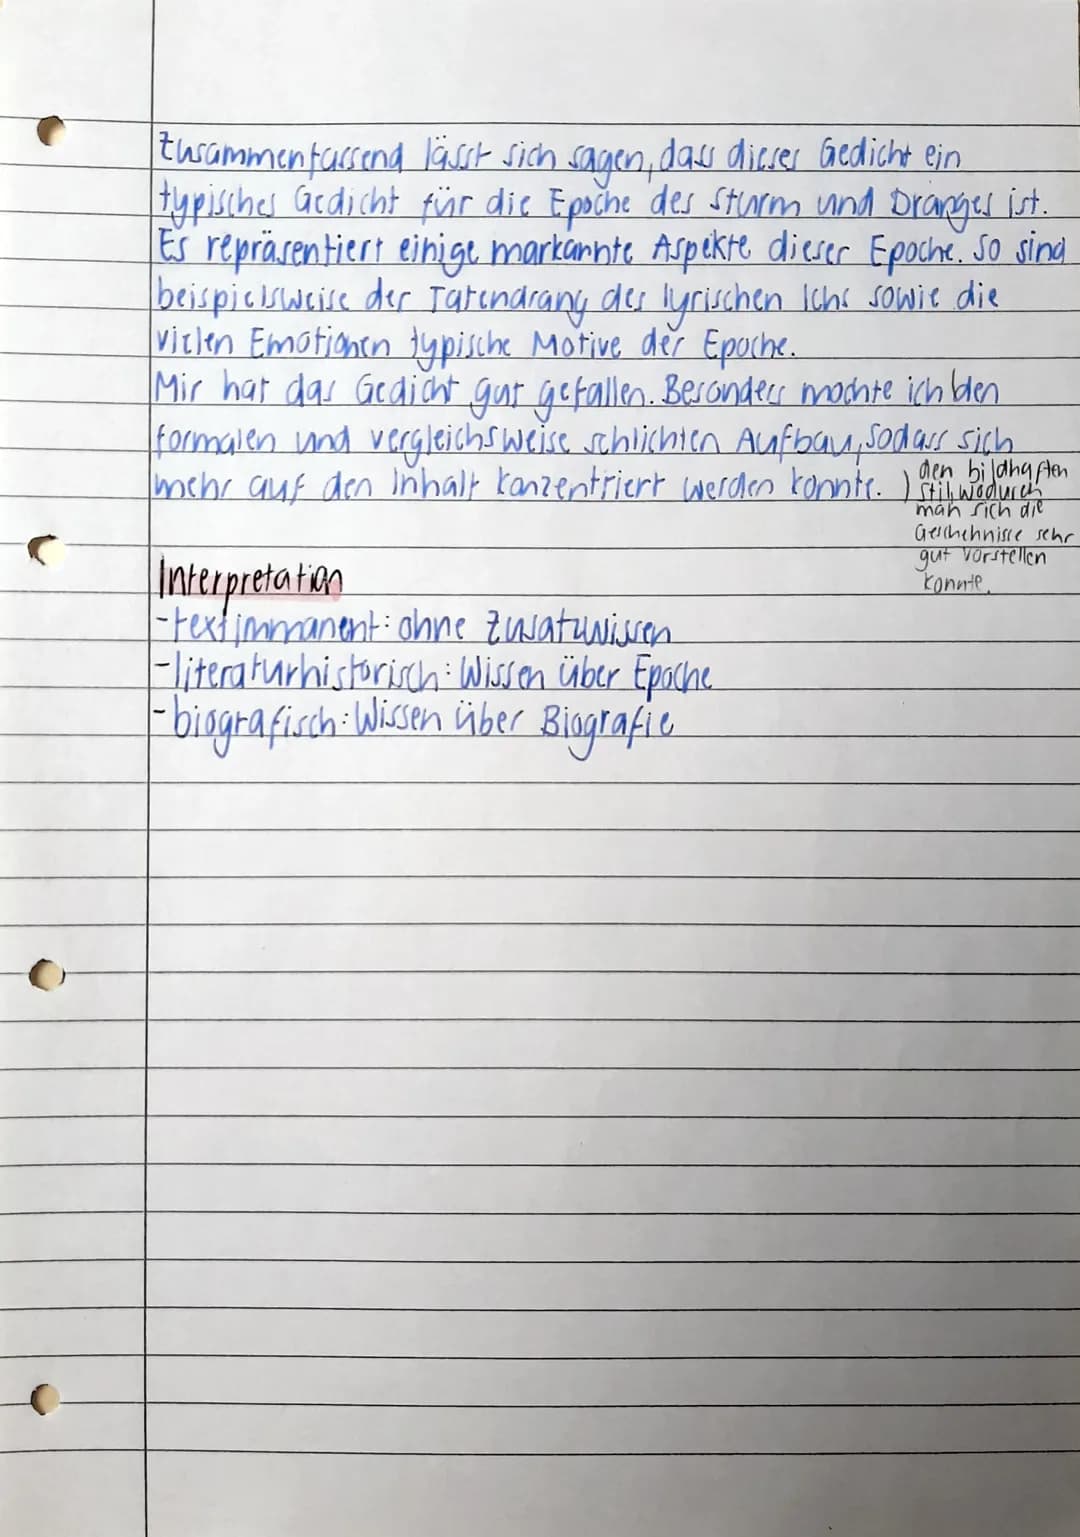 Zusammenfassend lässt sich sagen, dass dieses Gedicht ein
typisches Gedicht für die Epoche des Sturm und Dranges ist.
Es repräsentiert einige markannte Aspekte dieser Epoche. So sind
beispielsweise der Tatendrang des lyrischen Ichs sowie die
vielen Emotionen typische Motive der Epoche.
Mir hat das Gedicht gut gefallen. Besonders mochte ich den
formalen und vergleichsweise schlichten Aufbau, sodass sich
mehr auf den Inhalt konzentriert werden konnte.
den bildhaften
Stil, wodurch
man sich die
Geschehnisse sehr
gut vorstellen
konnte.
Interpretation
-textimmanent: ohne Zusatzwissen
-literaturhistorisch: Wissen über Epoche
-biografisch: Wissen über Biografie